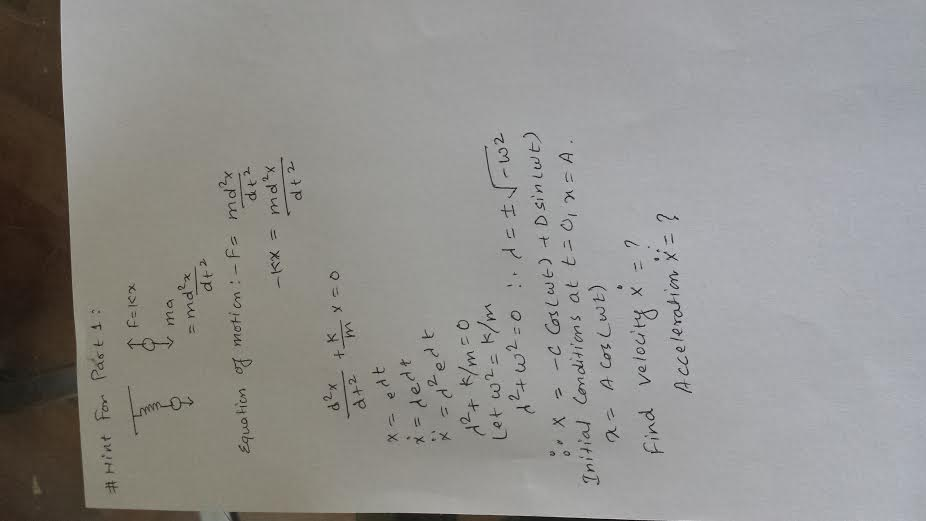 # Hint For Part 1:
F=Kx
ma
= md²x/dt²
Equation of motion:- F= md²x/dt²
-Kx = md²x/dt²
d²x/dt² + K/m x=0
x= edt
ẋ= dedt
ẍ= d²edt
d²+ K/m=0
Let w²= K/m
d²+w²=0 ∴ d= ±√-w²
∴ x = -C Cos(wt) + D sin(wt)
Initial Conditions at t=0, x=A.
x= A cos(wt)
Find velocity ẋ=?
Acceleration ẍ=?